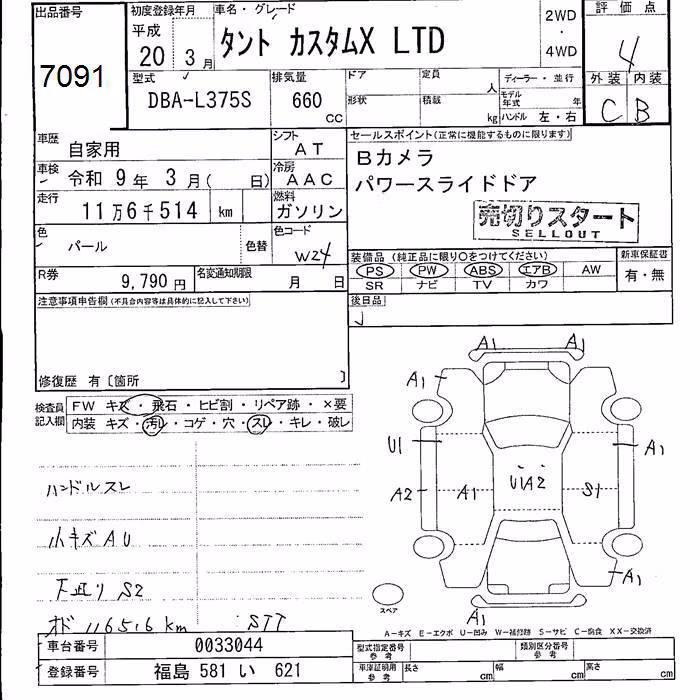 出品番号
7091
初度登録年月
平成
20 3月
車名・グレード
タント カスタムX LTD
2WD
・
4WD
評価点
4
外装 内装
C B
型式
DBA-L375S
排気量
660
CC
ドア
形状
定員
人
積載
kg
ディーラー・並行
モデル年式 年
ハンドル 左・右
車歴
自家用
シフト
AT
車検
令和 9年 3月( 日)
冷房
AAC
走行
11万6千514 km
燃料
ガソリン
色
パール
色替
色コード
W24
R券
9,790円
名変通知期限
月 日
セールスポイント(正常に機能するものに限ります)
Bカメラ
パワースライドドア
売切りスタート
SELLOUT
装備品(純正品に限り○をつけてください)
PS PW ABS エアB AW
SR ナビ TV カワ
新車保証書
有・無
後日品
注意事項申告欄(不具合内容等は具体的に記入して下さい)
修復歴 有〔箇所 〕
検査員
記入欄
FW キズ・飛石・ヒビ割・リペア跡・×要
内装 キズ・汚レ・コゲ・穴・スレ・キレ・破レ
ハンドルスレ
小キズ AU
下廻り S2
オド 116516km STT
A1 A1
A1
U1 A1
A2 A1 U1A2 S1
A1
A1
スペア
A-キズ E-エクボ U-凹み W-補修跡 S-サビ C-腐食 XX-交換済
車台番号
0033044
登録番号
福島 581 い 621
型式指定番号
参考
類別区分番号
参考
車庫証明用
参考
長さ cm
幅 cm
高さ cm